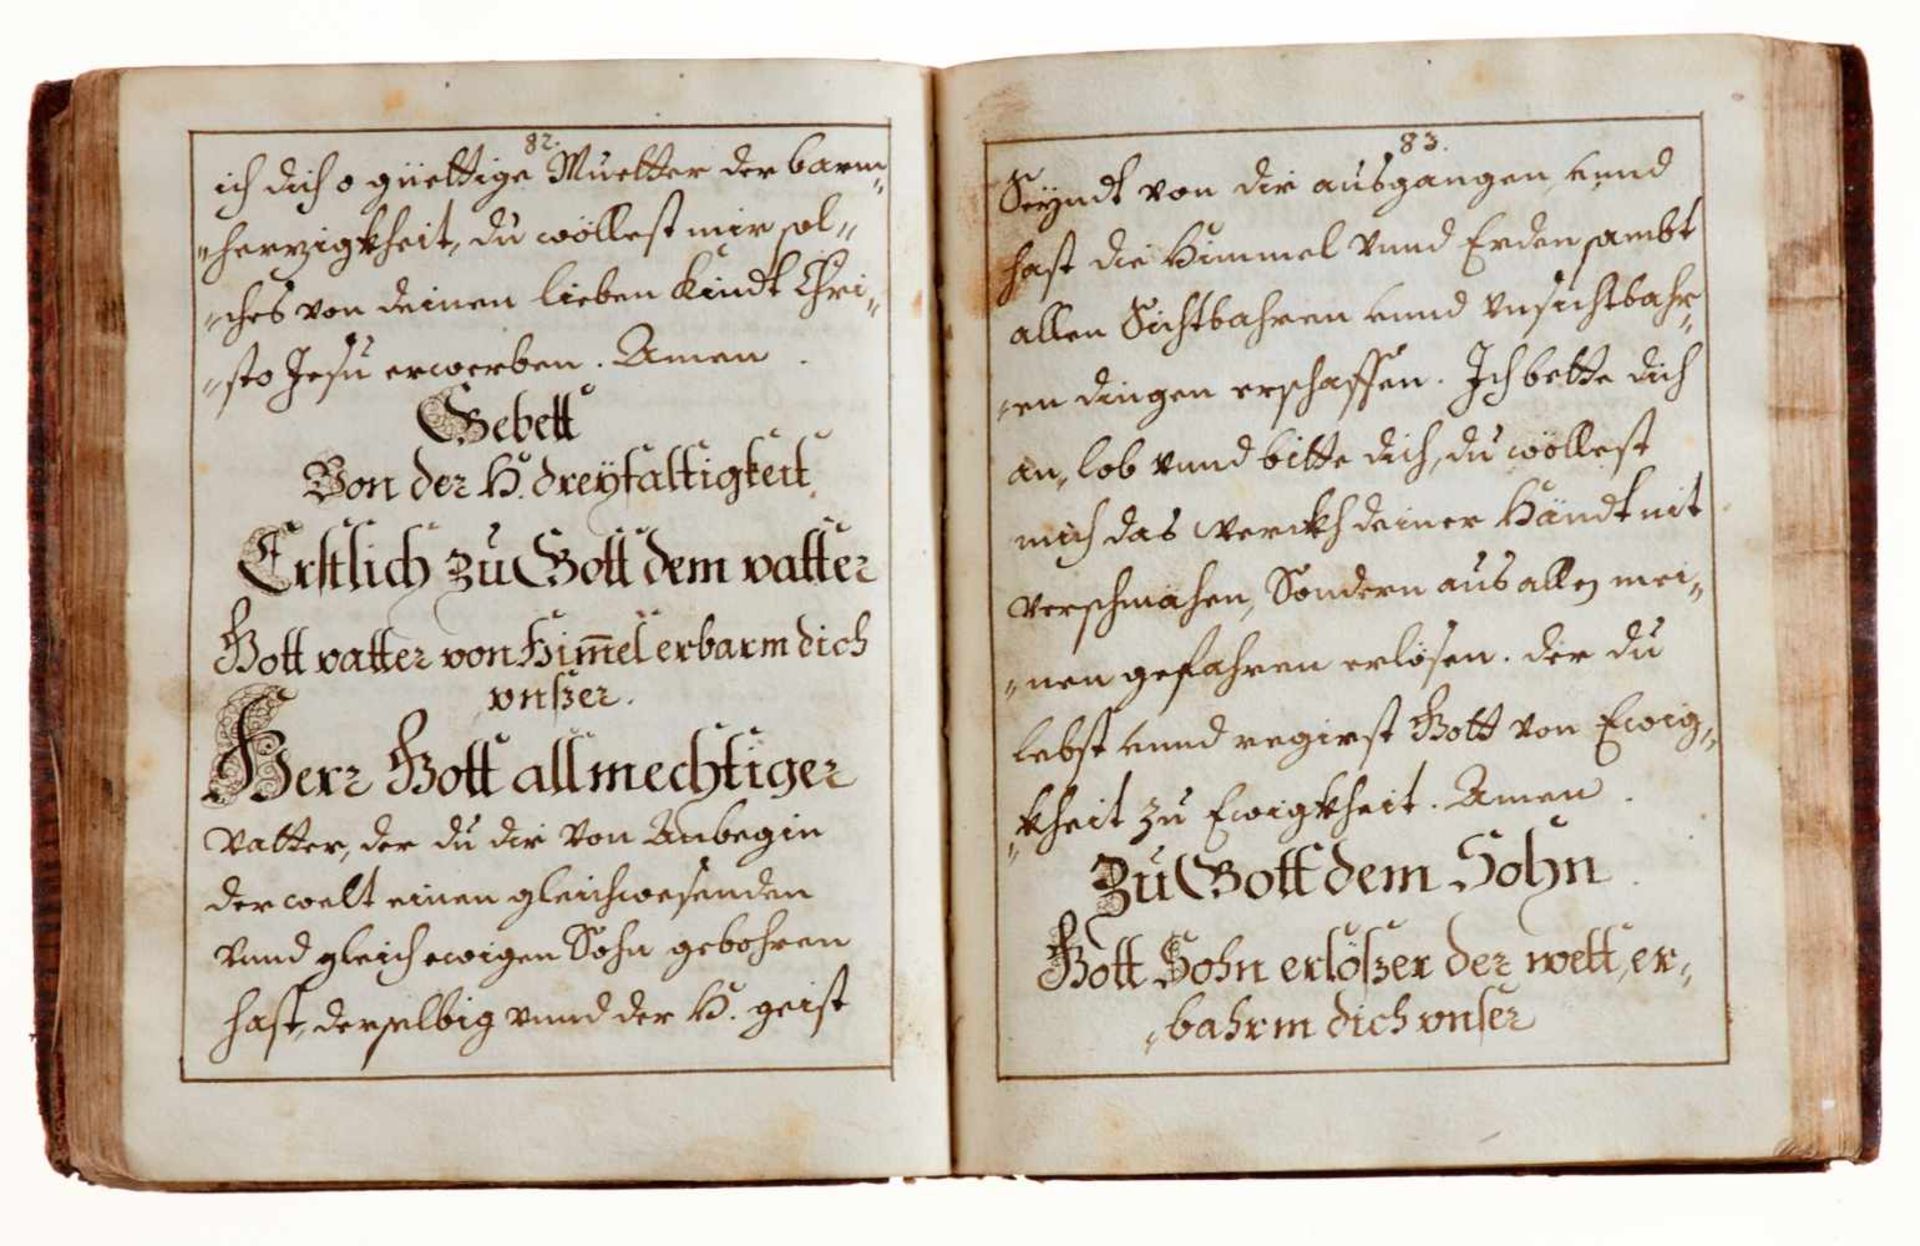 82.
ich dich o güettige Muetter der barm„
„hertzigkheit, du wöllest mir sol„
„ches von deinen lieben Kindt Chri„
„sto Jesu erwerben. Amen.
Gebett
Von der H. dreÿfaltigkeit.
Erstlich zu Gott dem vatter
Gott vatter von Him̄el erbarm dich
vnßer.
Herr Gott allmechtiger
Vatter, der du dir von Anbegin
der welt einen gleichwesenden
vnnd gleich ewigen Sohn gebohren
hast, derselbig vnnd der H. geist
83.
Seÿndt von dir ausgangen, vnnd
hast die Himmel vnnd Erden sambt
allen Sichtbahren vnnd vnsichtbahr„
„en dingen erschaffen. Ich bette dich
an, lob vnnd bitte dich, du wöllest
mich das werckh deiner Händt nit
verschmähen, Sondern aus allen mei„
„nen gefahren erlösen. der du
lebst vnnd regirst Gott von Ewig„
„kheit zu Ewigkheit. Amen.
Zu Gott dem Sohn.
Gott Sohn erlößer der welt, er„
„bahrm dich vnser